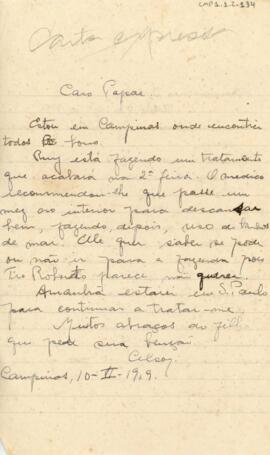 CMP1.1.2.134
Carta expressa
Caro Papae.
Estou em Campinas onde encontrei
todos bons.
Ruy está fazendo um tratamento
que acabará na 2ª feira. O medico
recommendou-lhe que passe um
mez no interior para descansar
bem, fazendo, depois, uso de banhos
de mar. Elle quer saber se pode
ou não ir para a fazenda pois
Tio Roberto parece não querer.
Amanhã estarei em S. Paulo
para continuar a tratar-me.
Muitos abraços do filho
que pede sua benção
Celso
Campinas, 10-II-1919.